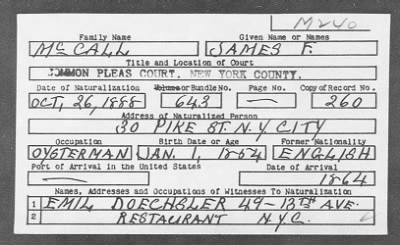 M240
Family Name Given Name or Names
McCALL JAMES F.
Title and Location of Court
COMMON PLEAS COURT, NEW YORK COUNTY.
Date of Naturalization Volume or Bundle No. Page No. Copy of Record No.
OCT, 26, 1888 643 — 260
Address of Naturalized Person
30 PIKE ST. N.Y. CITY
Occupation Birth Date or Age Former Nationality
OYSTERMAN JAN. 1, 1854 ENGLISH
Port of Arrival in the United States Date of Arrival
1864
Names, Addresses and Occupations of Witnesses To Naturalization
1 EMIL DOECHGLER 49-13TH AVE.
2 RESTAURANT N.Y.C.